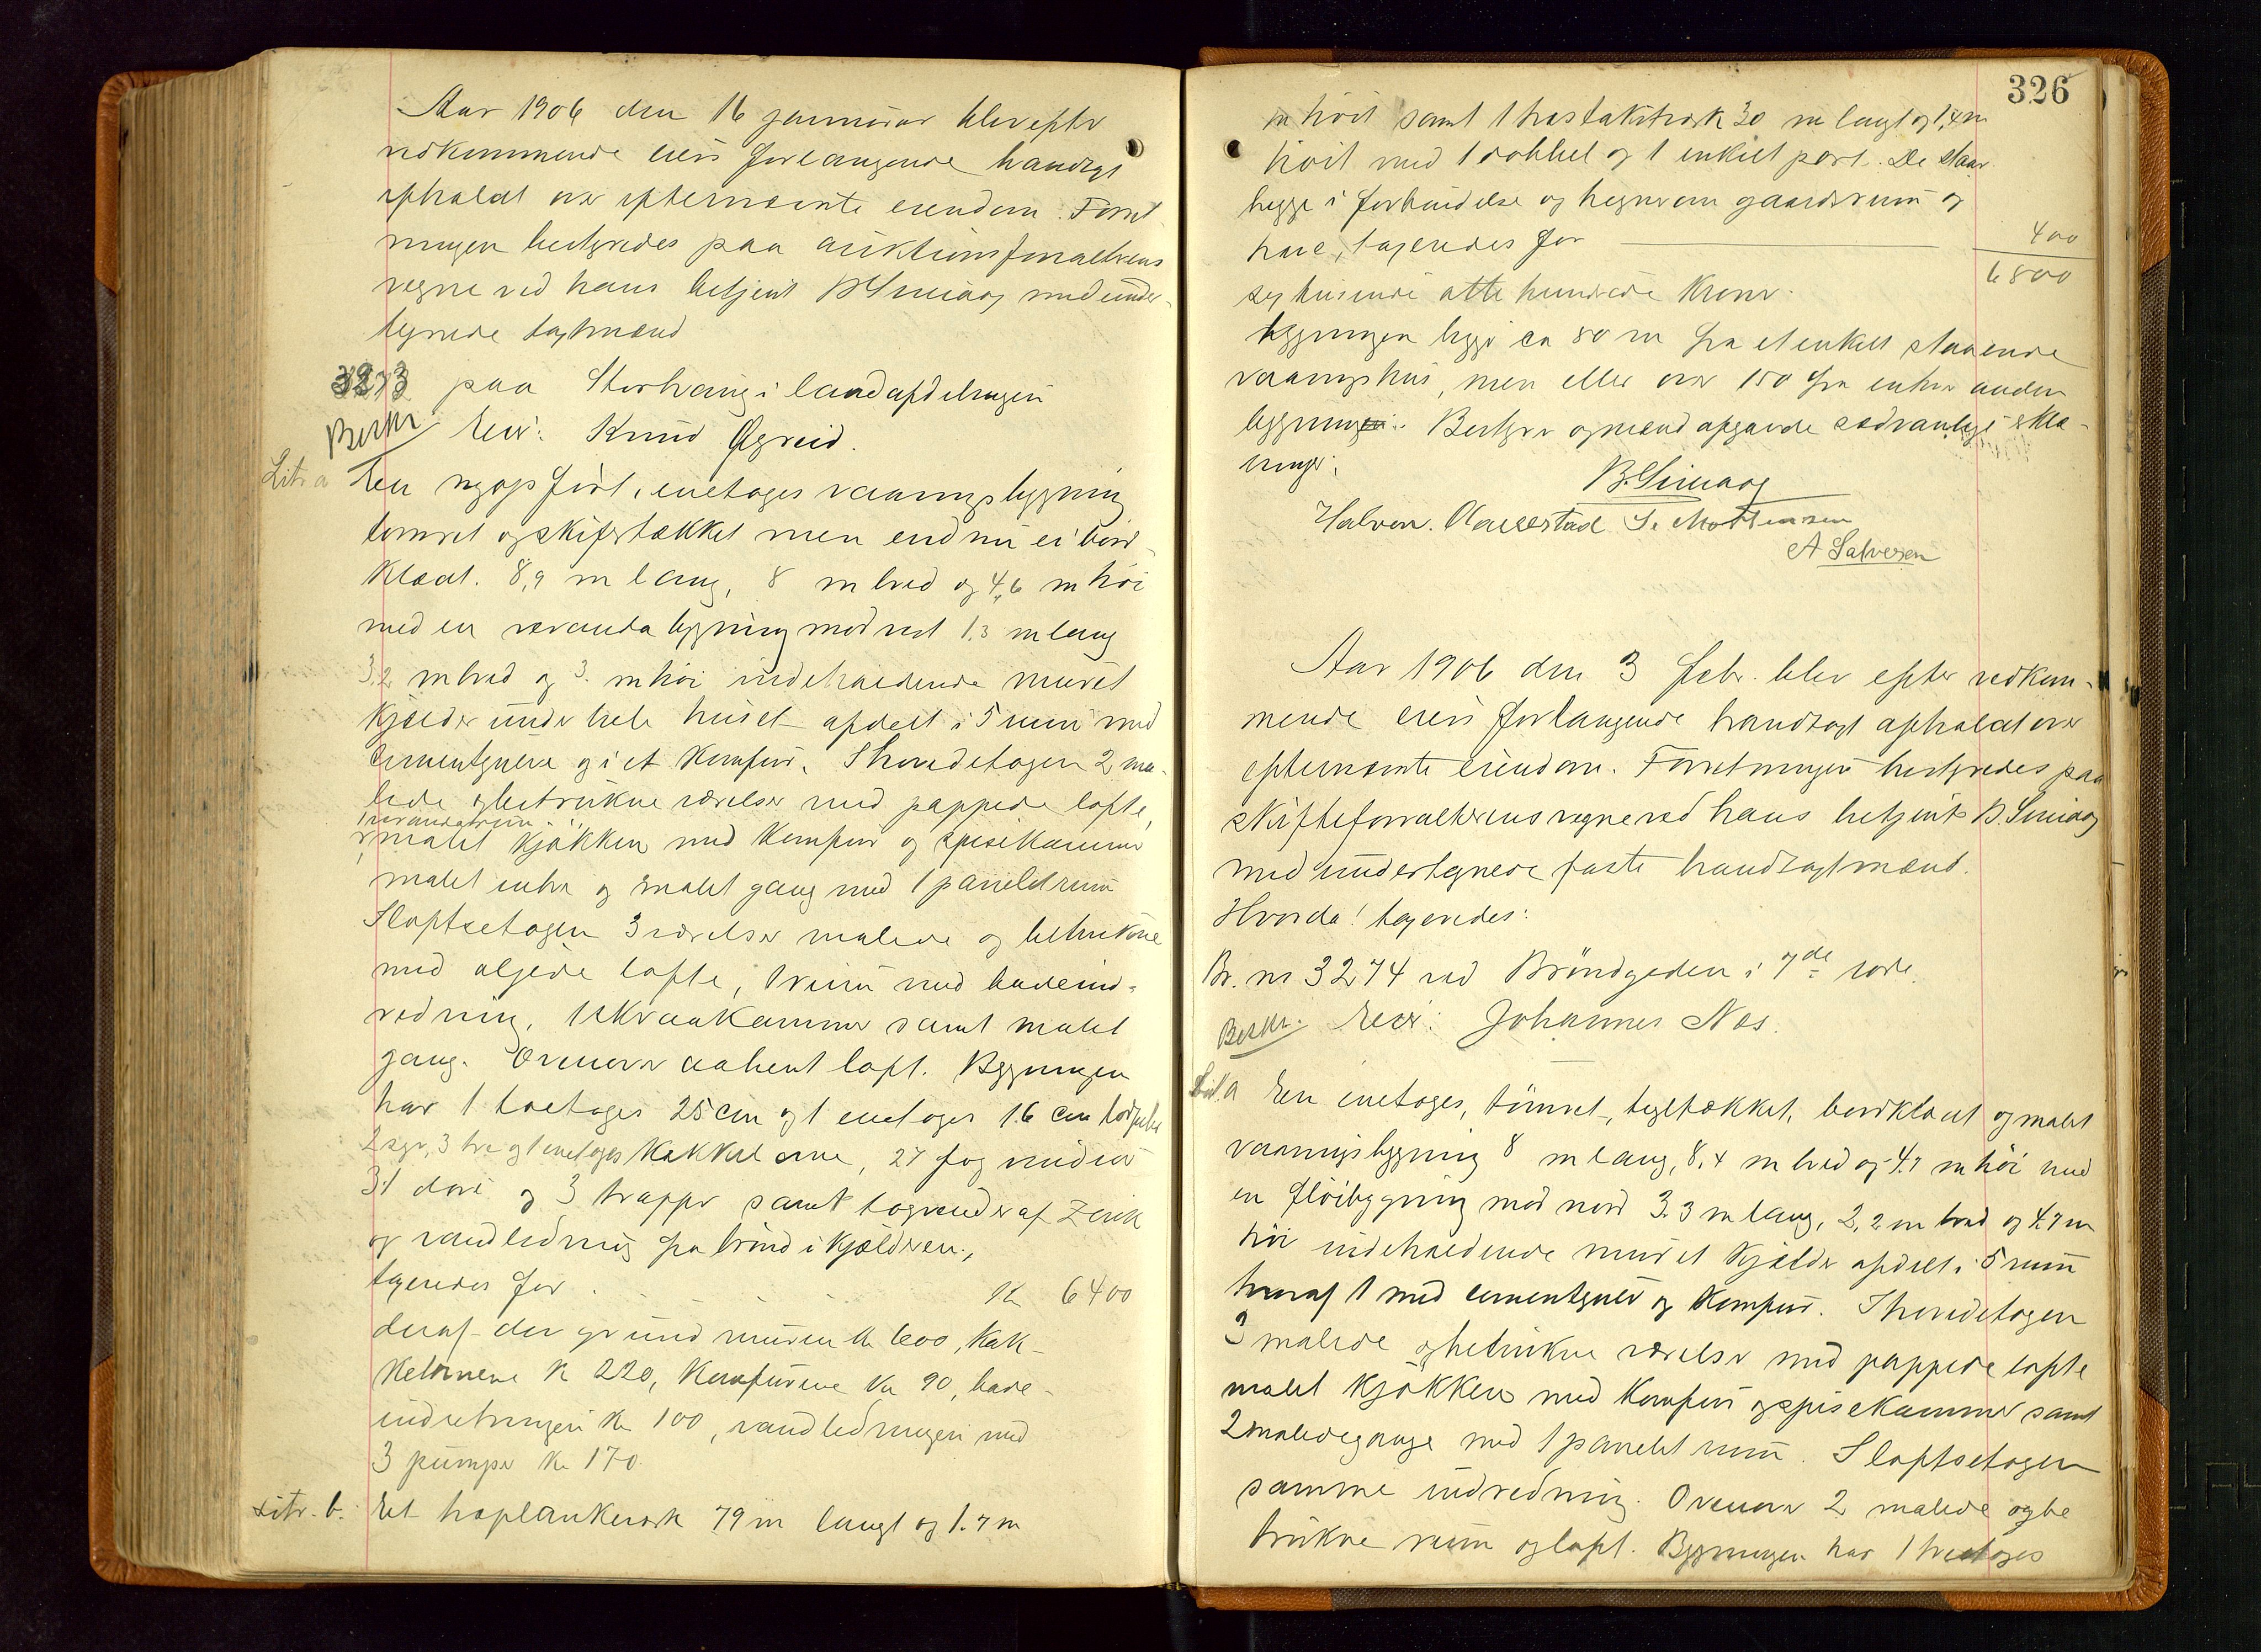 Aar 1906 den 16 januuar blev efter
vedkommende eiers forlangende brandtagst
afholdt over efternævnte eiendom. Forret
ningen bestyredes paa auktionsforvalterens
vegne ved hans betjent B Smaag med under-
tegnede tagstmænd
3273 paa Storhaug i landafdelingen
Beskr Eier: Knud Øgreid.
Litr a En nyopført, enetages vaaningsbygning
tømret og skifertækket men endnu ei bord-
klædt. 8,9 m lang, 8 m bred og 4,6 m høi
med en veranda bygning mod vest 1.3 m lang
3.2 m bred og 3. m høi indeholdende muret
kjælder under hele huset afdelt i 5 rum med
cementgulve og i et komfur. I hovedetagen 2 ma-
lede og betrukne værelser med pappede lofte,
1 verandarum
malet kjøkken med komfur og spisekammer
malet entre og malet gang med 1 panelet rum
I loftsetagen 3 værelser malede og betrukne
med oljede lofte, 1 rum med badeind-
redning, 1 skraakammer samt malet
gang. Ovenover aabent loft. Bygningen
har 1 toetages 25 cm og 1 enetages 16 cm
2 3 tre og 1 enetages kakkelovne, 27 fag vinduer
31 døre og 3 trapper samt tagrender af Zink
og vandledning fra brønd i kjælderen.,
tageredes for Kr 6400
deraf den grundmuren Kr 600, kak-
kelovnene Kr 220, komfurene Kr 90, bade-
indretningen Kr 100, vandledningen med
3 pumper Kr 170
Litr. b. Et træplankeværk 79 m langt og 1.7 m
326
m høit samt 1 træstakitværk 30 m langt og 1,4 m
høit med 1 dobbel og 1 enkelt port. De staar
begge i forbindelse og hegner om gaardsrum og
have, tageredes for 400
6800
seg tusende otte hundrede Kroner.
Bygningen ligger ca 80 m fra et enkelt staaende
vaaningshus, men ellers over 150 fra enhver anden
bygning. Bestyrer og mænd afgavde sædvanlige erklæ-
ringer.
B. Smaag
Halvor. Olausstad S. Mortensen
A Salvesen
Aar 1906 den 3 febr. blev efter vedkom-
mende eiers forlangende brandtagst afholdt over
efternævnte eiendom. Forretningen bestyredes paa
skifteforvalterens vegne ved hans betjent B. Smaag
med undertegnede faste brandtagstmænd.
Hvorda! tageredes:
Br. nr 3274 ved Brøndgaden i 7de rode.
Beskr. Eier: Johannes Næs.
Lit. a En enetages, tømret, tegltækket, bordklædt og malet
vaaningsbygning 8 m lang, 8,4 m bred og 4.7 m høi med
en fløibygning mod nord 3.3 m lang, 2,2 m bred og 4.7 m
høi indeholdende muret kjælder afdelt i 5 rum
hvoraf 1 med cementgulv og komfur. I hovedetagen
3 malede og betrukne værelser med pappede lofte
malet kjøkken med komfur og spisekammer samt
2 malede gange med 1 panelet rum. I loftsetagen
samme indredning. Ovenover 2 malede og be
trukne rum og loft. Bygningen har 1 treetages